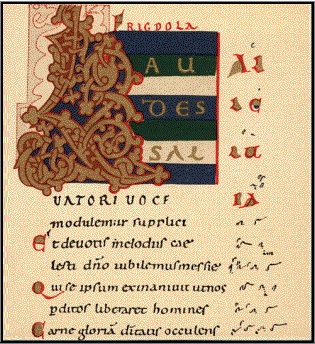 FRIGDOLA
LAU AL
DES LE
SAL LU
UATORI UOCE IA
modulemur supplici
Et deuotis melodiis cae
lesti dño iubilemus messie
Qui se ipsum exinaniuit ut nos
pditos liberaret homines
Carne gloriā ditatis occulens